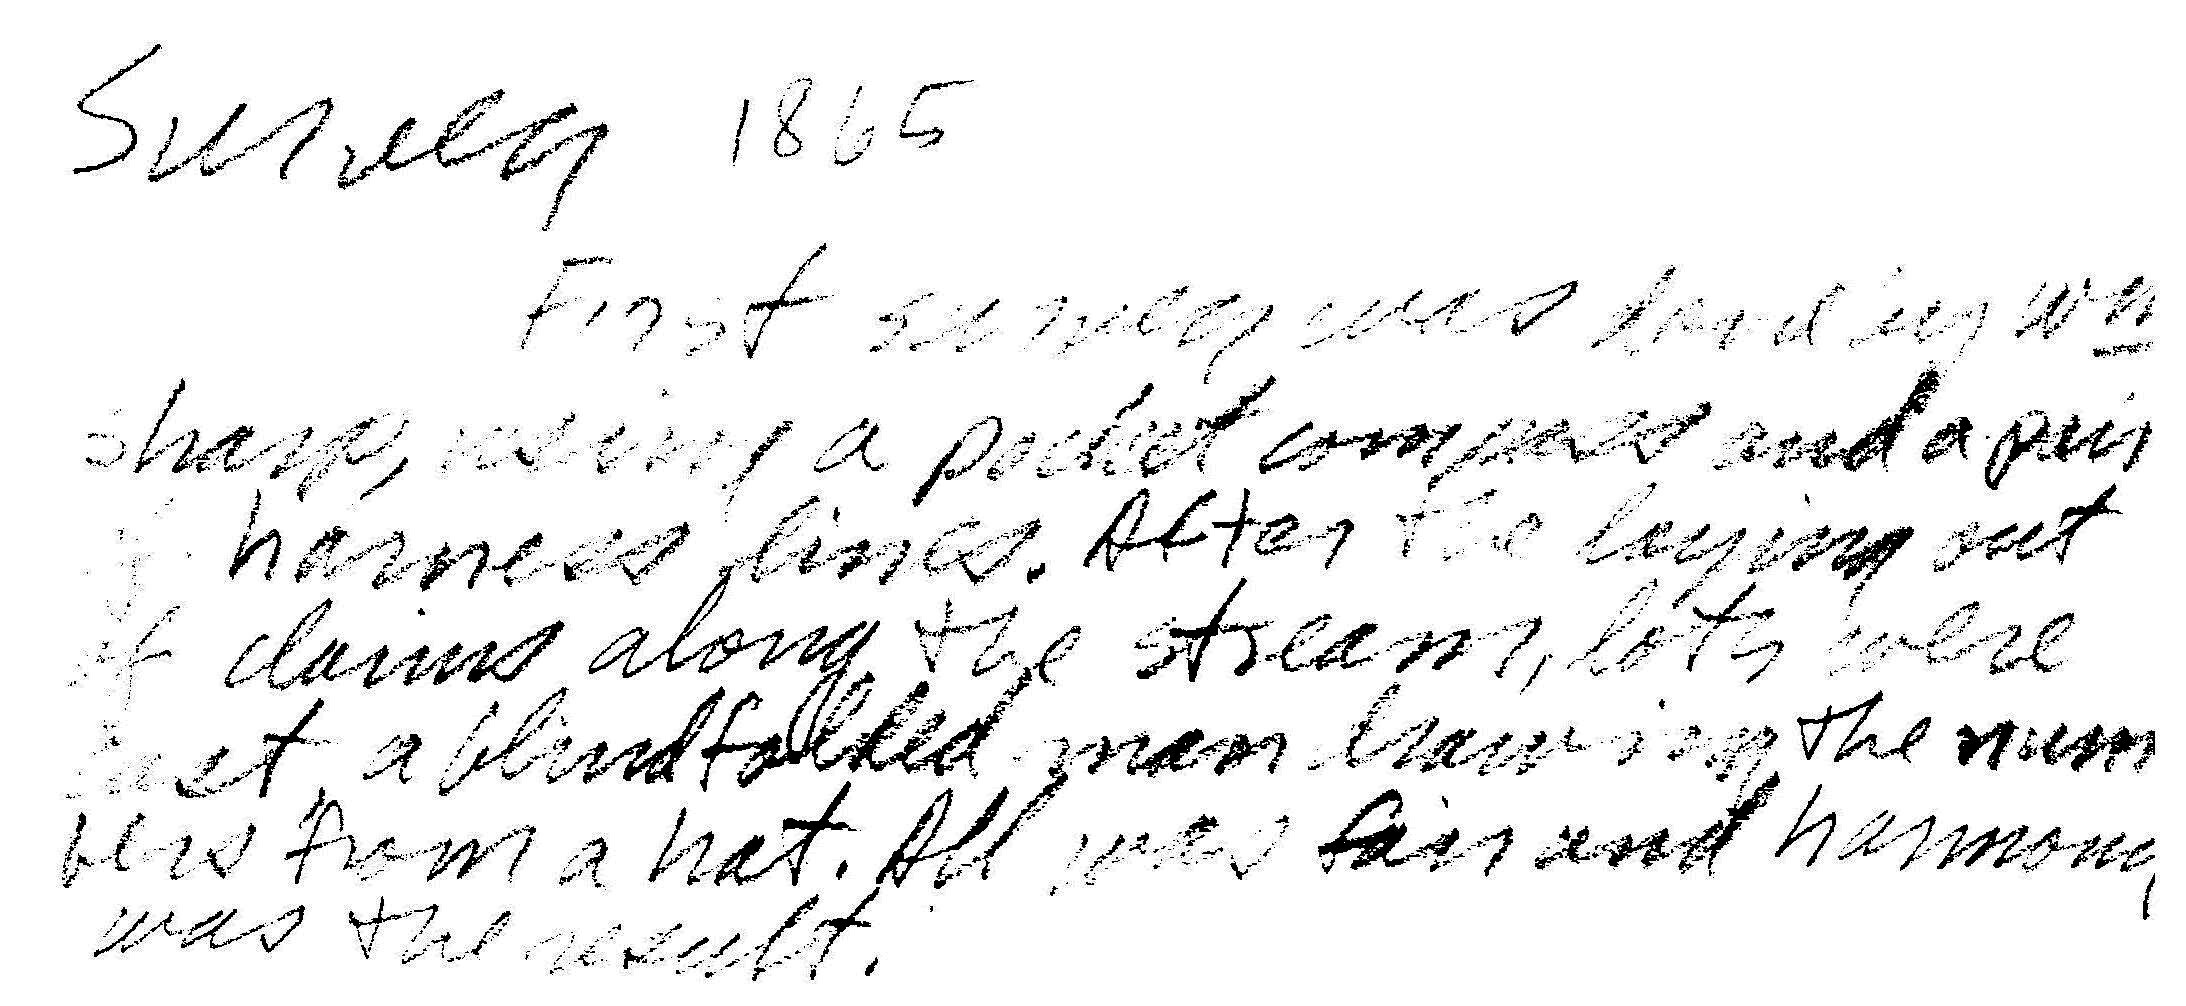 Survey 1865
First survey was done by Wm
Sharp, using a pocket compass and a pair
of harness lines. After the laying out
of claims along the stream, lots were
cast, a blindfolded man drawing the num
bers from a hat. All was fair and harmony
was the result.